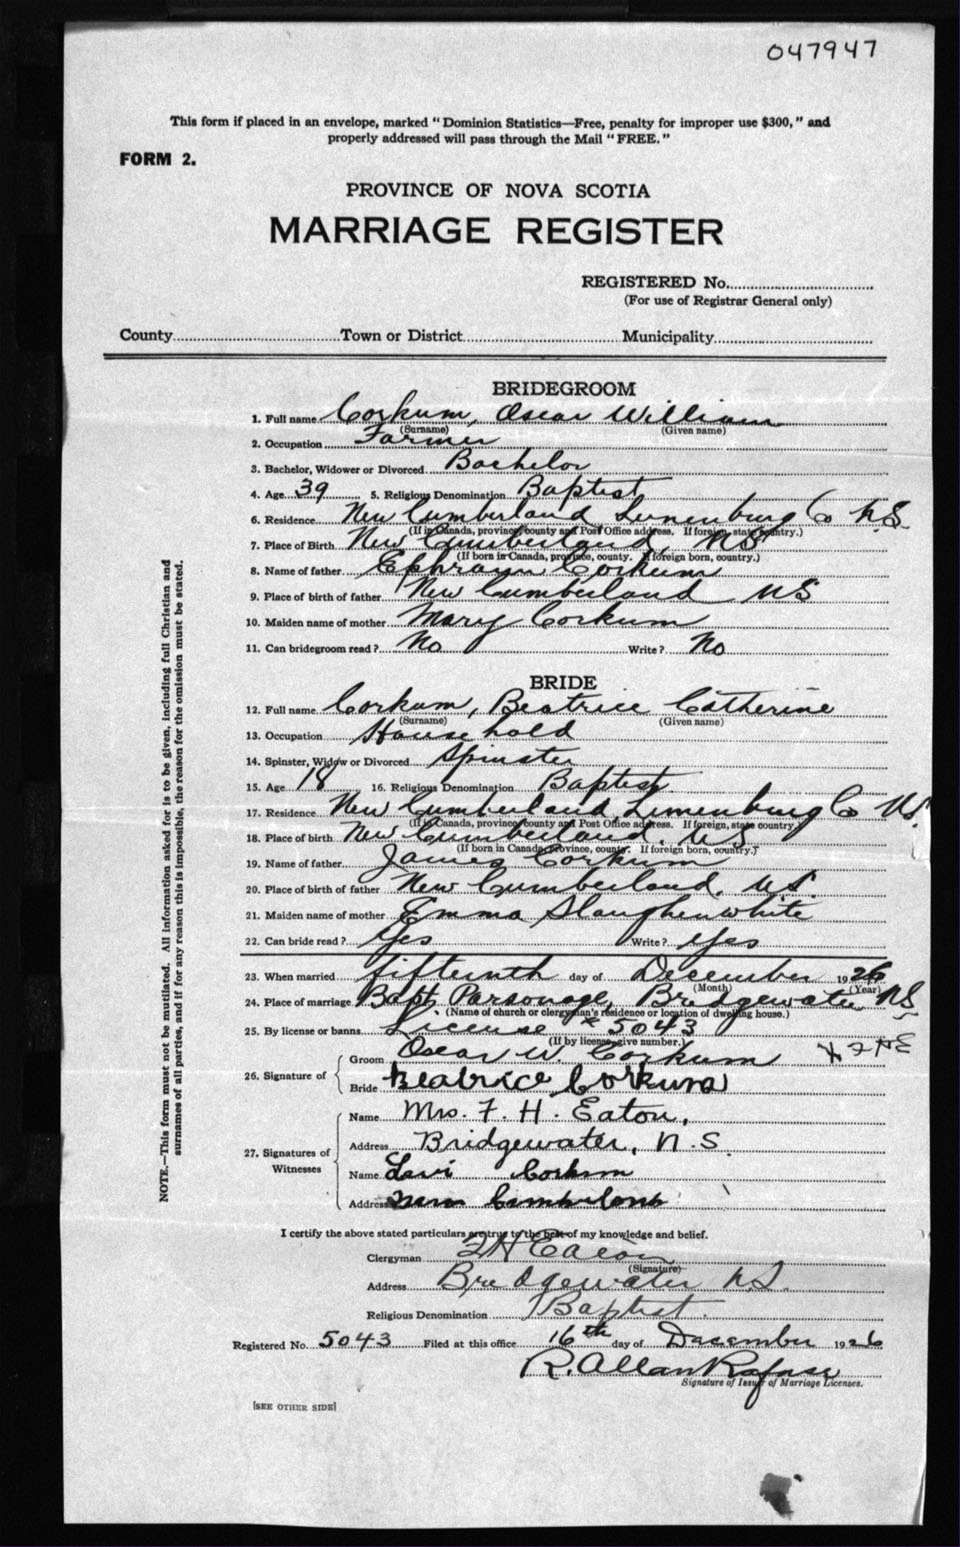 047947
This form if placed in an envelope, marked "Dominion Statistics—Free, penalty for improper use $300," and
properly addressed will pass through the Mail "FREE."
FORM 2.
PROVINCE OF NOVA SCOTIA
MARRIAGE REGISTER
REGISTERED No.
(For use of Registrar General only)
County Town or District Municipality
BRIDEGROOM
1. Full name Corkum, Oscar William
(Surname) (Given name)
2. Occupation Farmer
3. Bachelor, Widower or Divorced Bachelor
4. Age 39 5. Religious Denomination Baptist
6. Residence New Cumberland Lunenburg Co N.S.
(If in Canada, province, county and Post Office address. If foreign, state country.)
7. Place of Birth New Cumberland, NS
(If born in Canada, province, county. If foreign born, country.)
8. Name of father Ephraim Corkum
9. Place of birth of father New Cumberland NS
10. Maiden name of mother Mary Corkum
11. Can bridegroom read? No Write? No
BRIDE
12. Full name Corkum, Beatrice Catherine
(Surname) (Given name)
13. Occupation Household
14. Spinster, Widow or Divorced Spinster
15. Age 18 16. Religious Denomination Baptist
17. Residence New Cumberland, Lunenburg Co NS.
(If in Canada, province, county and Post Office address. If foreign, state country.)
18. Place of birth New Cumberland. NS
(If born in Canada, province, county. If foreign born, country.)
19. Name of father James Corkum
20. Place of birth of father New Cumberland. NS.
21. Maiden name of mother Emma Slaughenwhite
22. Can bride read? Yes Write? Yes
23. When married fifteenth day of December 1926
(Month) (Year)
24. Place of marriage Bapt Parsonage, Bridgewater NS
(Name of church or clergyman's residence or location of dwelling house.)
25. By license or banns License # 5043
(If by license, give number.)
26. Signature of
Groom Oscar W. Corkum
Bride Beatrice Corkum
27. Signatures of Witnesses
Name Mrs. F. H. Eaton,
Address Bridgewater, N.S.
Name Levi Corkum
Address New Cumberland
I certify the above stated particulars are true to the best of my knowledge and belief.
Clergyman F H Eaton
(Signature)
Address Bridgewater N.S.
Religious Denomination Baptist.
Registered No. 5043 Filed at this office 16th day of December 1926
R. Allan Rafuse
Signature of Issuer of Marriage Licenses.
[SEE OTHER SIDE]
NOTE.—This form must not be mutilated. All information asked for is to be given, including full Christian and
surnames of all parties, and if for any reason this is impossible, the reason for the omission must be stated.